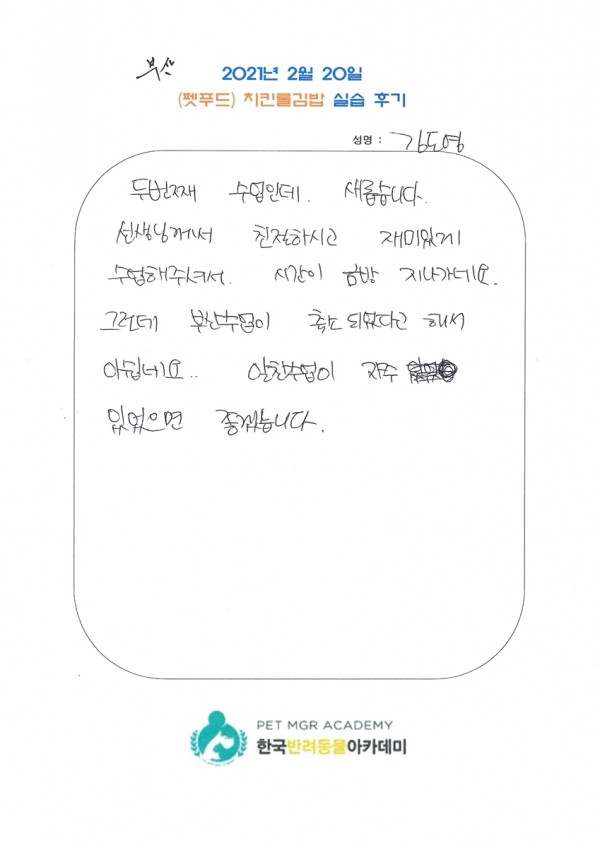 부산
2021년 2월 20일
(펫푸드) 치킨롤김밥 실습 후기
성명 : 김도영
두번재 수업인데. 새롭습니다.
선생님께서 친절하시고 재미있게
수업해주셔서. 시간이 금방 지나가네요.
그런데 부산수업이 축소 되었다고 해서
아쉽네요.. 알찬수업이 자주
있었으면 좋겠습니다.
PET MGR ACADEMY
한국반려동물아카데미